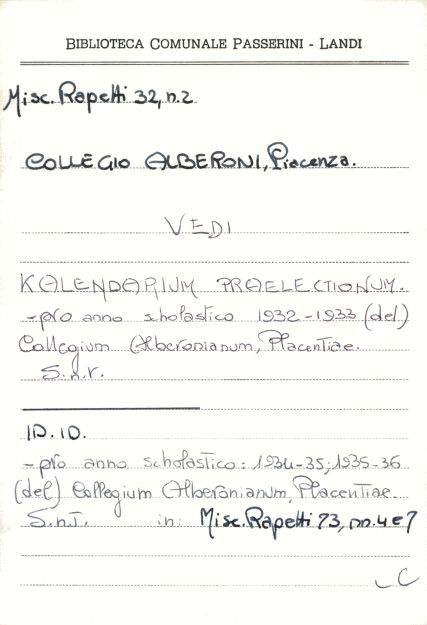 BIBLIOTECA COMUNALE PASSERINI - LANDI
Misc. Rapetti 32, n.2
COLLEGIO ALBERONI, Piacenza.
VEDI
KALENDARIUM PRAELECTIONUM.
-pro anno scholastico 1932-1933 (del)
Collegium Alberonianum, Placentiae.
S.n.t.
ID. ID.
-pro anno scholastico: 1934-35; 1935-36
(del) Collegium Alberonianum, Placentiae.
S.n.T. in: Misc. Rapetti 73, nn. 4 e 7